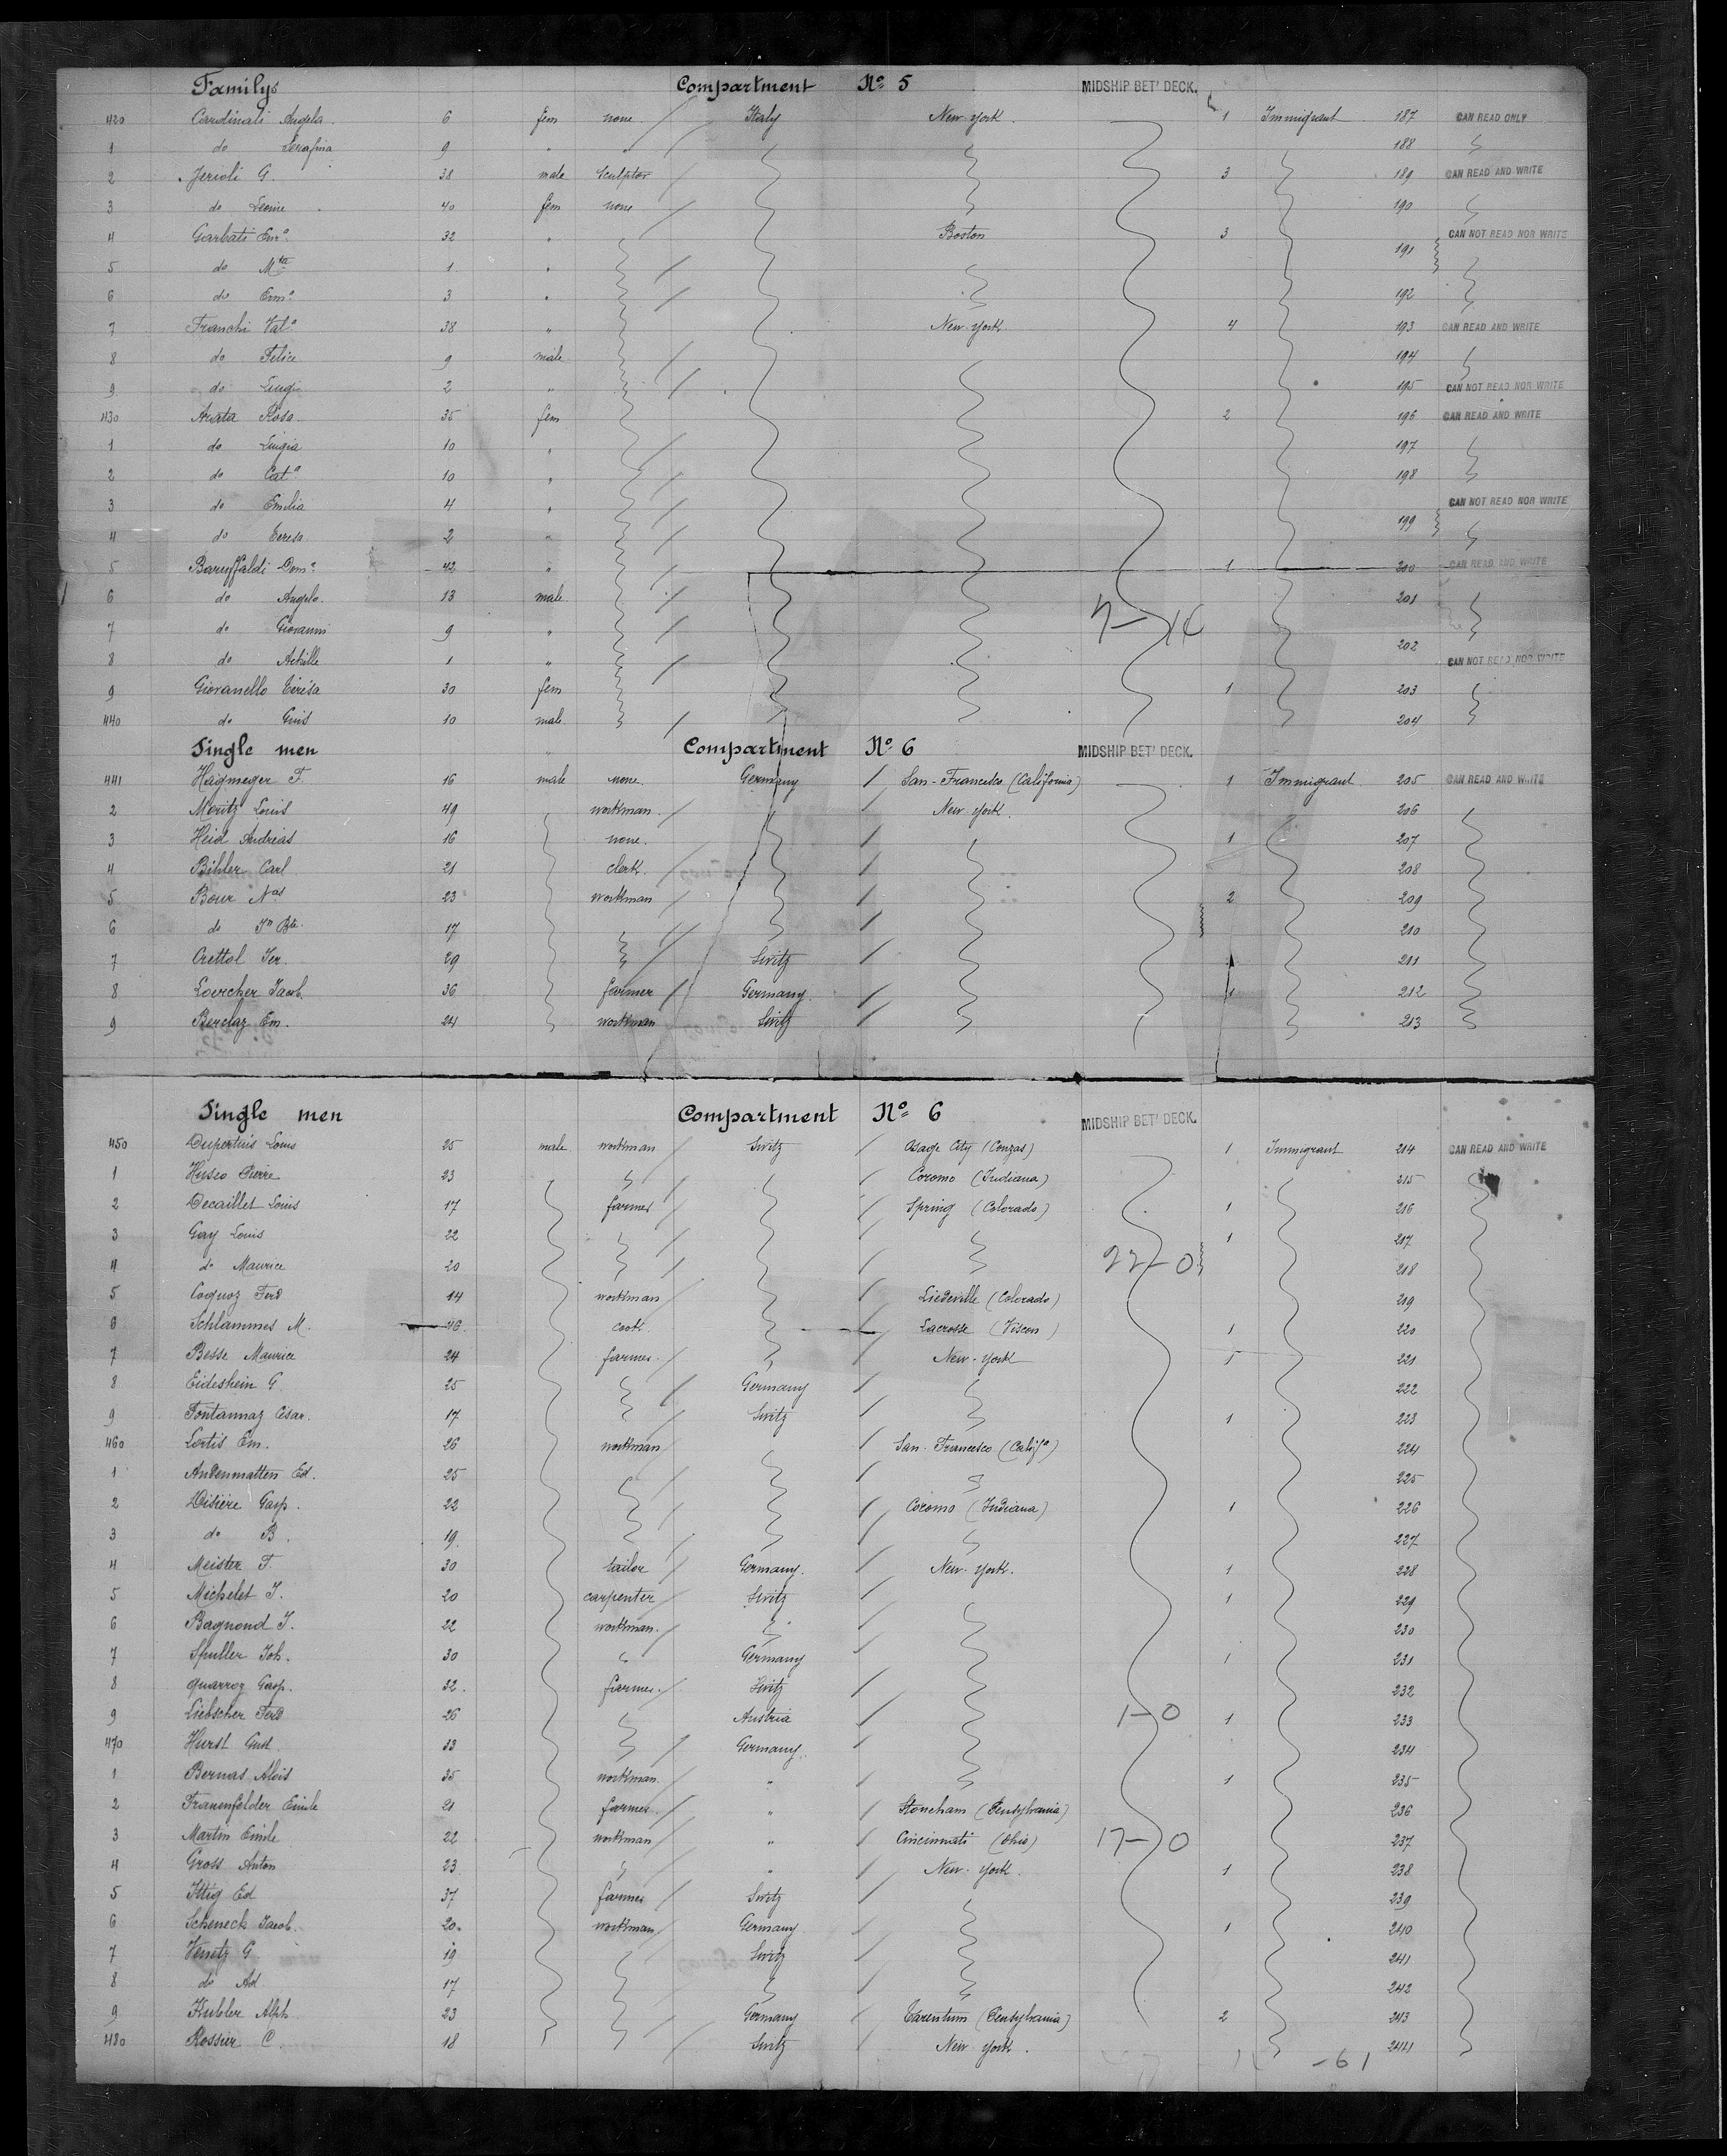 Familys Compartment No 5 MIDSHIP BET' DECK.
420 Cardinali Angela 6 fem none Italy New-york 1 Immigrant 187 CAN READ ONLY
1 do Serafina 9 " " 188
2 Jerioli G. 38 male Sculptor 3 189 CAN READ AND WRITE
3 do Leonie 40 fem none 190
4 Garbati Em° 32 " Boston 3 CAN NOT READ NOR WRITE
5 do Mta 1 " 191
6 do Erm° 3 " 192
7 Franchi Val° 38 " New-york 4 193 CAN READ AND WRITE
8 do Felice 9 male 194
9 do Luigi 2 " 195 CAN NOT READ NOR WRITE
430 Arata Rosa 35 fem 2 196 CAN READ AND WRITE
1 do Luigia 10 " 197
2 do Cat° 10 " 198
3 do Emilia 4 " CAN NOT READ NOR WRITE
4 do Teresa 2 " 199
5 Baruffaldi Dom° 42 " 1 200 CAN READ AND WRITE
6 do Angelo 13 male 201
7 do Giovanni 9 " 202
8 do Achille 1 " CAN NOT READ NOR WRITE
9 Giovanello Térésa 30 fem 1 203
440 do Gius 10 male 204
Single men Compartment No 6 MIDSHIP BET' DECK.
441 Hagmeyer F. 16 male none Germany San-Francisco (California) 1 Immigrant 205 CAN READ AND WRITE
2 Moritz Louis 49 workman New-york 206
3 Heid Andréas 16 none 1 207
4 Bihler Carl 21 clerk 208
5 Bour Nas 23 workman 2 209
6 do Jn Bte 17 210
7 Crettol Fer. 29 Switz 211
8 Loercher Jacob 36 farmer Germany 1 212
9 Berclaz Em. 24 workman Switz 213
Single men Compartment No 6 MIDSHIP BET' DECK.
450 Dupertuis Louis 25 male workman Switz Osage City (Conzas) 1 Immigrant 214 CAN READ AND WRITE
1 Husco Pierre 23 Cocomo (Indiana) 215
2 Decaillet Louis 17 farmer Spring (Colorado) 1 216
3 Gay Louis 22 1 217
4 do Maurice 20 22-0 218
5 Coquoz Ferd 14 workman Liedeville (Colorado) 219
6 Schlammes M. 46 cook Lacrosse (Viscon) 1 220
7 Besse Maurice 24 farmer New-york 1 221
8 Eideshein G. 25 Germany 222
9 Fontannaz César 17 Switz 1 223
460 Lortis Em. 26 workman San-Francesco (Calif°) 224
1 Andenmatten Ed. 25 225
2 Disière Gasp. 22 Cocomo (Indiana) 1 226
3 do B. 19 227
4 Meister F. 30 tailor Germany New-york 1 228
5 Michelet J. 20 carpenter Switz 1 229
6 Bagnoud J. 22 workman 230
7 Spuller Joh. 30 Germany 1 231
8 quarroz Gasp. 32 farmer Switz 232
9 Liebscher Ferd 26 Austria 1-0 1 233
470 Hurst Gust. 33 Germany 234
1 Bernas Alois 35 workman " 1 235
2 Frauenfelder Emile 21 farmer " Stoneham (Pensylvania) 236
3 Martin Emile 22 workman " Cincinnati (Ohio) 17-0 237
4 Gross Anton 23 " New-york 1 238
5 Ittig Ed 37 farmer Switz 239
6 Scheneck Jacob 20 workman Germany 1 240
7 Venetz G. 19 Switz 241
8 do Ad. 17 242
9 Kubler Alph 23 Germany Tarentum (Pensylvania) 2 243
480 Rossier C. 18 Switz New-york 244
-61